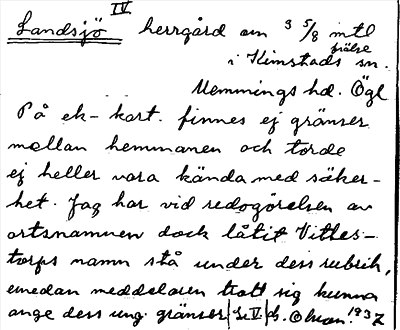 IV
Landsjö herrgård om 3 5/8 mtl
frälse
i Kimstads sn.
Memmings hd. Ögl
På ek-kart. finnes ej gränser
mellan hemmanen och torde
ej heller vara kända med säker-
het. Jag har vid redogörelsen av
ortsnamnen dock låtit Vittes-
torps namn stå under dess rubrik,
emedan meddelaren trott sig kunna
ange dess ung. gränser
1937